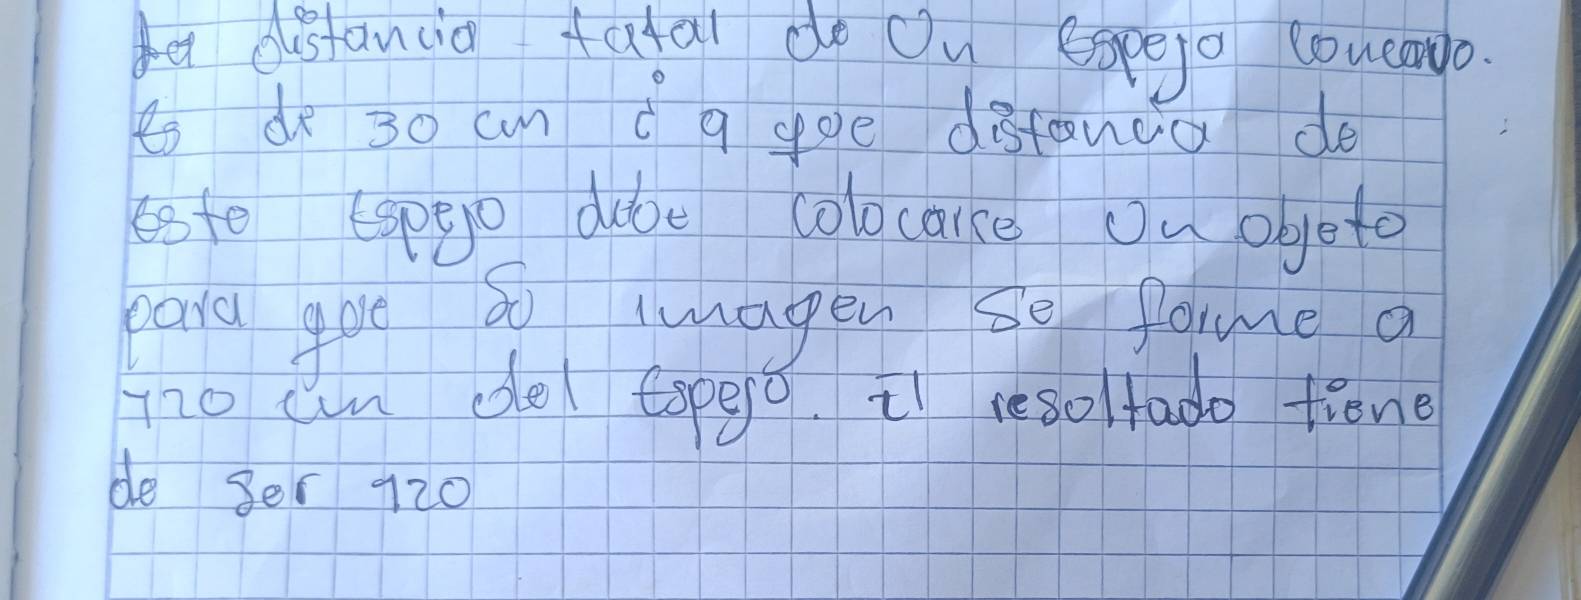 La distancia fatal de Un Espejo concavo.
Es de 30 cm ¿ a que distancia de
este Espejo debe colocarse Un objeto
para que Su imagen se forme a
120 cm del Espejo. El resoltado tiene
de ser 120